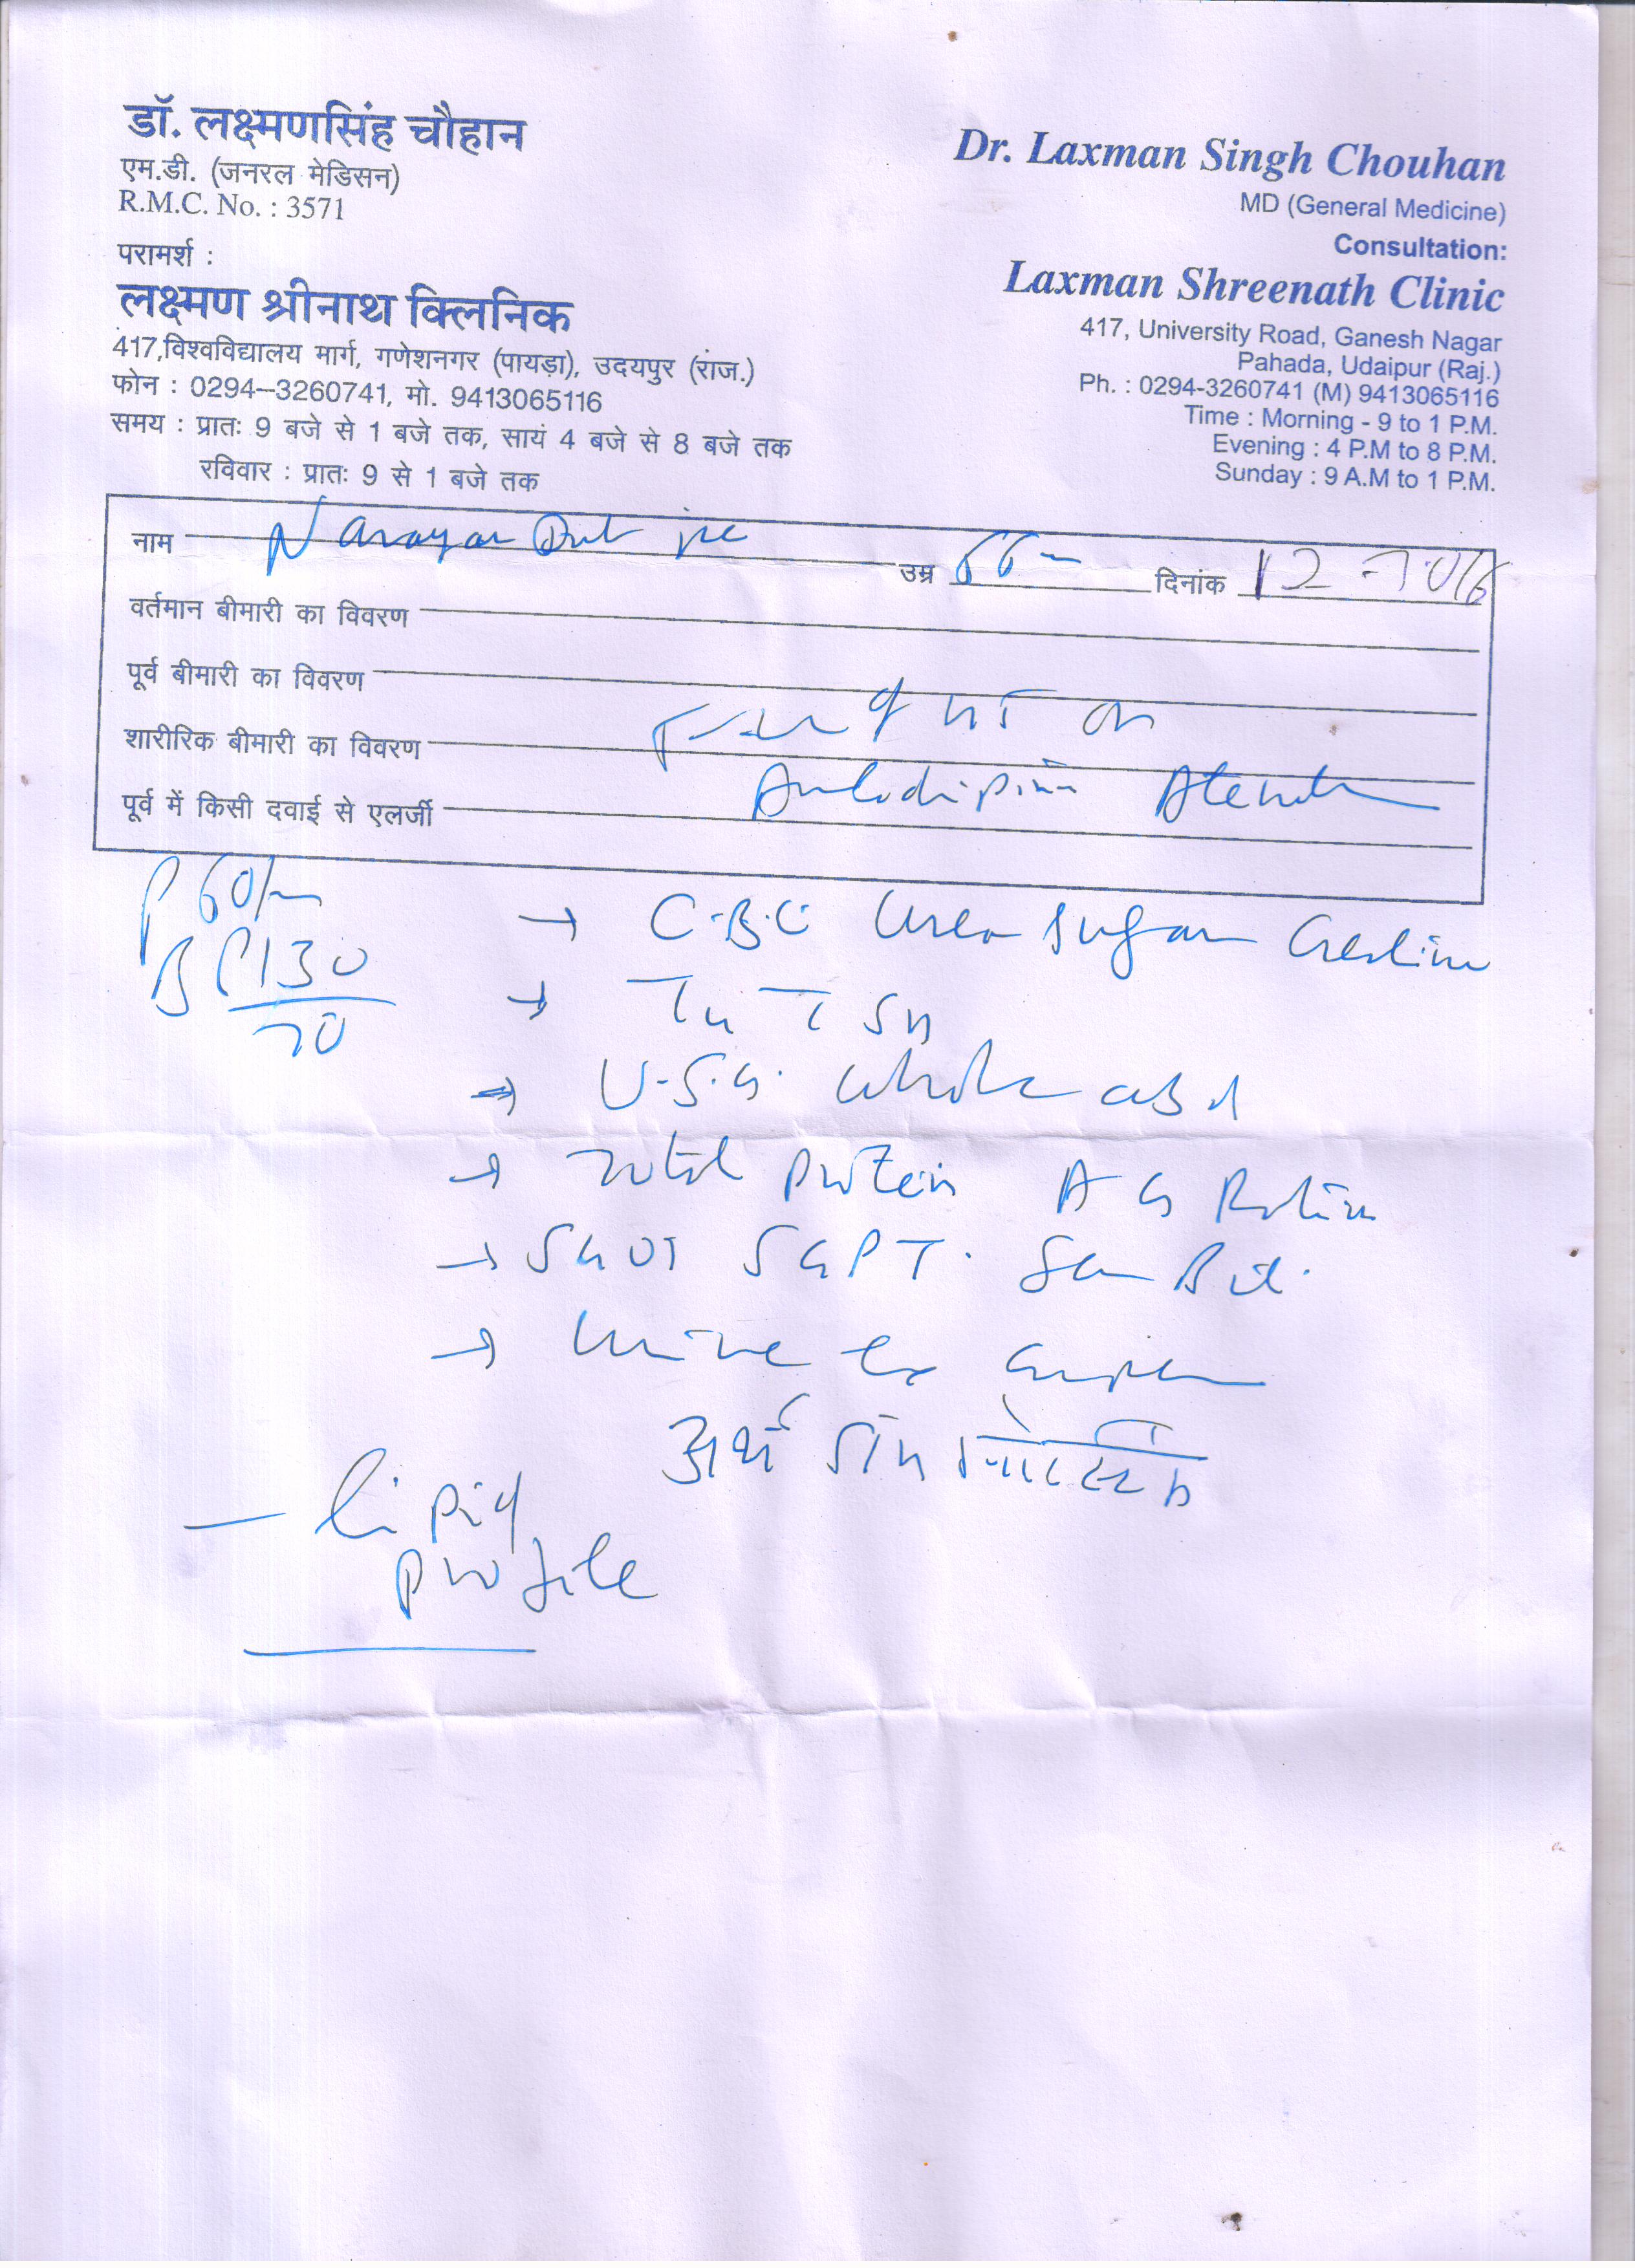 डॉ. लक्ष्मणसिंह चौहान
एम.डी. (जनरल मेडिसन)
R.M.C. No. : 3571
परामर्श :
लक्ष्मण श्रीनाथ क्लिनिक
417,विश्वविद्यालय मार्ग, गणेशनगर (पायड़ा), उदयपुर (राज.)
फोन : 0294–3260741, मो. 9413065116
समय : प्रातः 9 बजे से 1 बजे तक, सायं 4 बजे से 8 बजे तक
रविवार : प्रातः 9 से 1 बजे तक
Dr. Laxman Singh Chouhan
MD (General Medicine)
Consultation:
Laxman Shreenath Clinic
417, University Road, Ganesh Nagar
Pahada, Udaipur (Raj.)
Ph. : 0294-3260741 (M) 9413065116
Time : Morning - 9 to 1 P.M.
Evening : 4 P.M to 8 P.M.
Sunday : 9 A.M to 1 P.M.
नाम Narayan उम्र दिनांक
वर्तमान बीमारी का विवरण
पूर्व बीमारी का विवरण
शारीरिक बीमारी का विवरण on
पूर्व में किसी दवाई से एलर्जी
P 60/m
BP 130
70
→ C.B.C Urea Sugar
→ T3 T4 TSH
→ U.S.G. whole abd
→ Total protein A G
→ SGOT SGPT. Bil.
→ urine
अर्थ
— lipid
profile